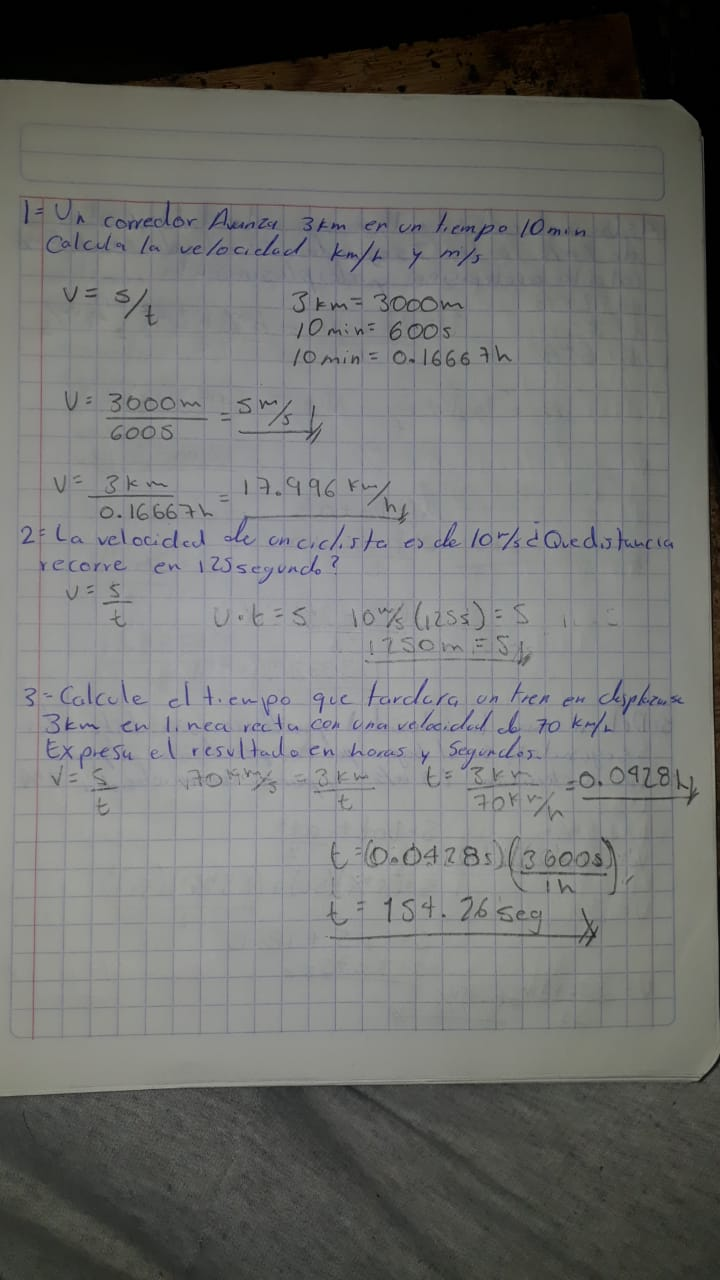 1= Un corredor Avanza 3km en un tiempo 10min
Calcula la velocidad km/h y m/s
V= s/t
3km= 3000m
10min= 600s
10min= 0.16667h
V= 3000m/600s = 5m/s
V= 3km/0.16667h = 17.996 km/h
2= La velocidad de un ciclista es de 10m/s ¿Que distancia
recorre en 125segundo?
V= s/t v·t=s 10m/s (125s)=S
1250m=S
3-Calcule el tiempo que tardara un tren en desplazarse
3km en linea recta con una velocidad de 70 km/h
Expresa el resultado en horas y segundos.
V= s/t = 3km/t t= 3km/70km/h =0.0428h
t=(0.0428s)(3600s/1h)
t= 154.26seg